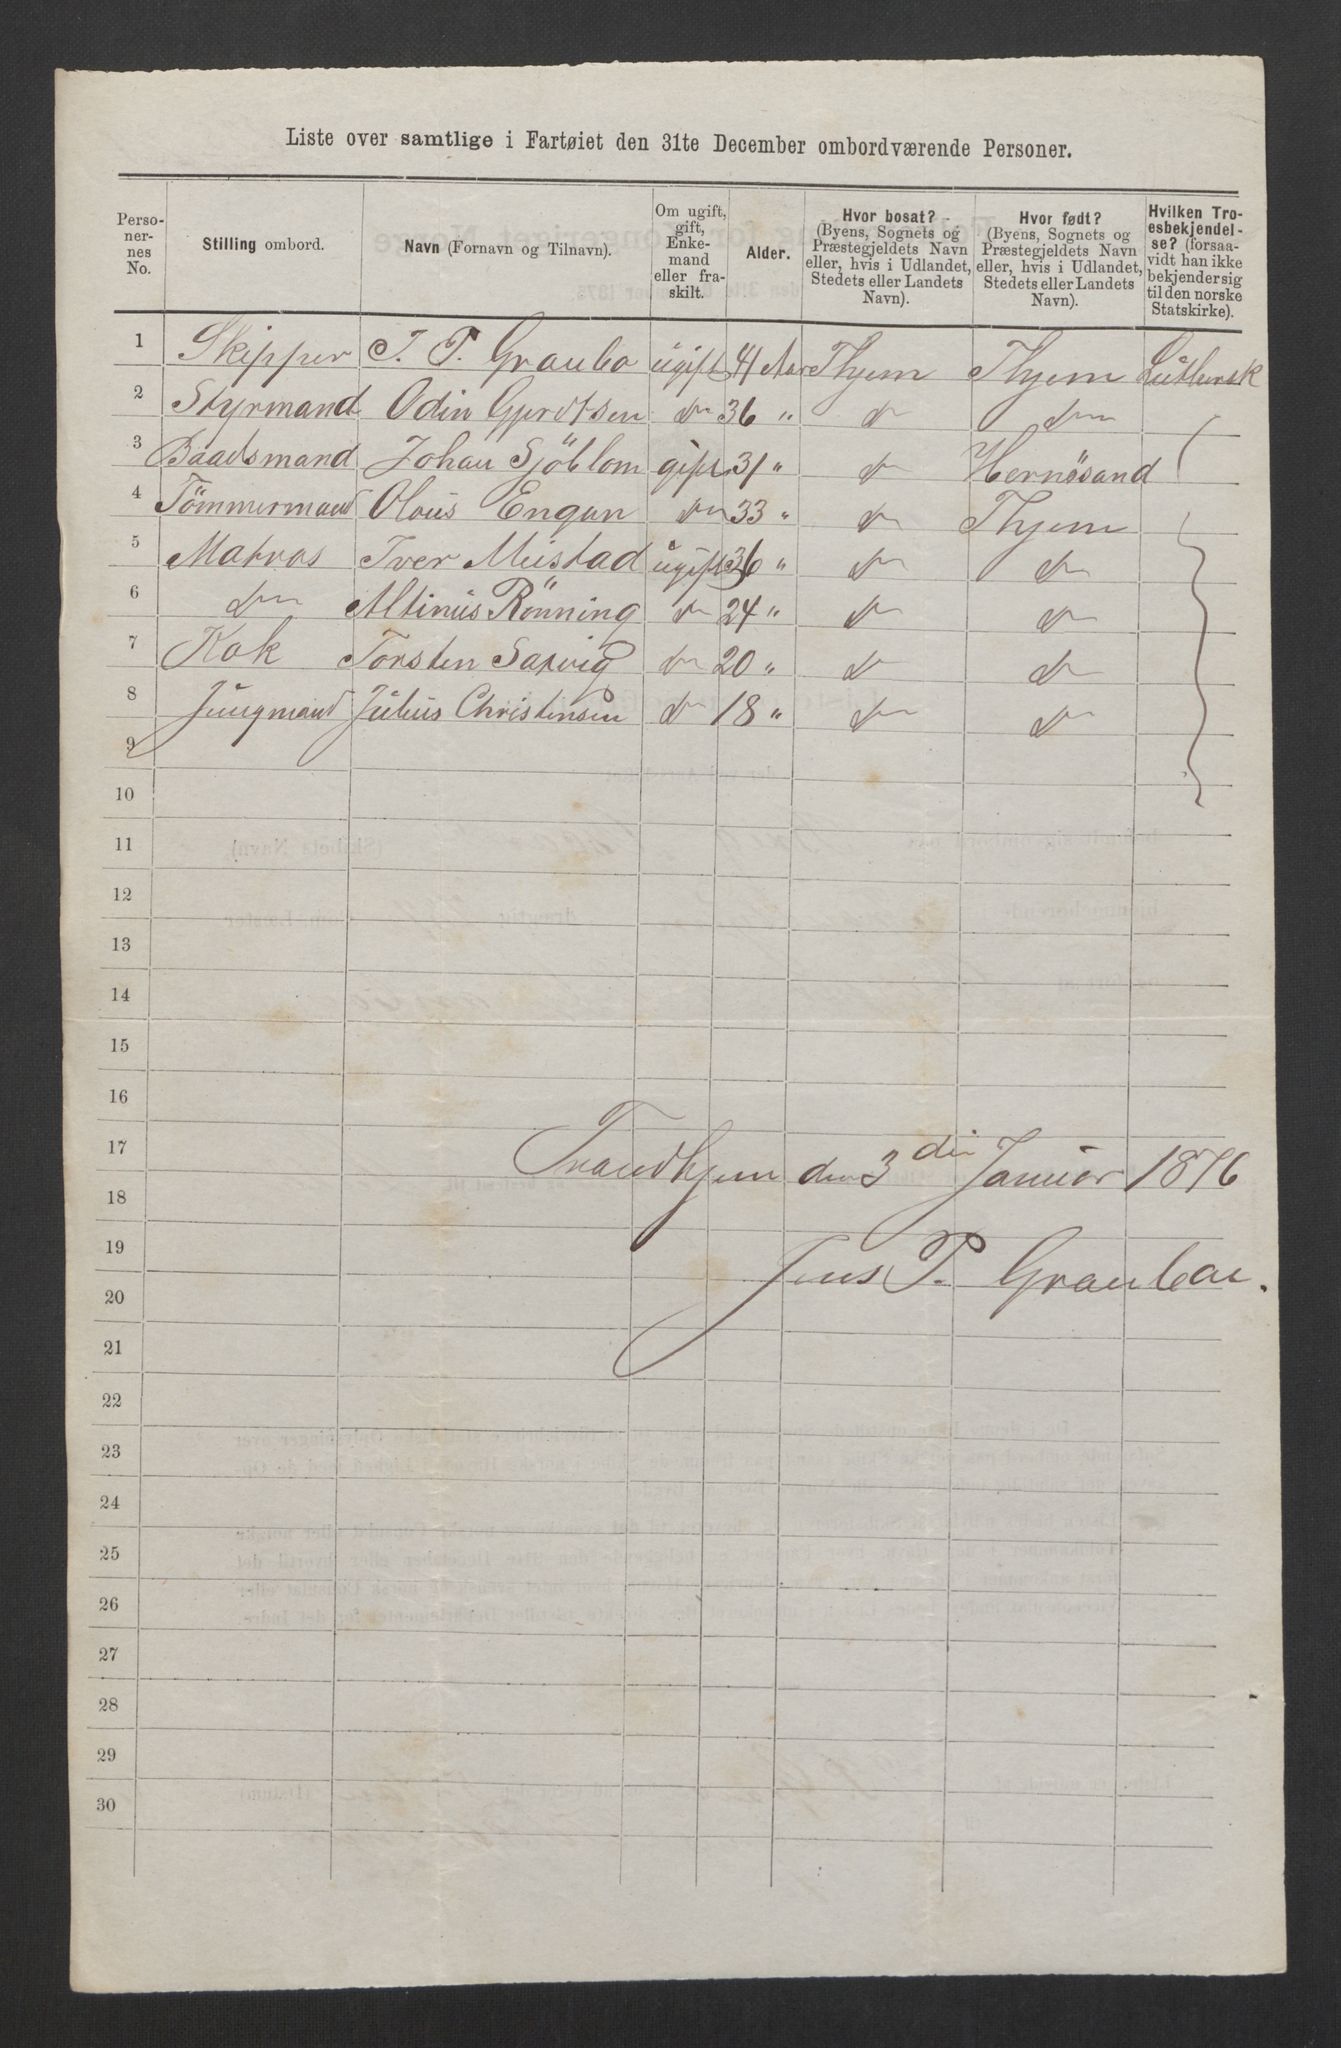 Liste over samtlige i Fartøiet den 31te December ombordværende Personer.
Perso-
ner-
nes
No.
Stilling ombord.
Navn (Fornavn og Tilnavn).
Om ugift,
gift,
Enke-
mand
eller fra-
skilt.
Alder.
Hvor bosat?
(Byens, Sognets og
Præstegjeldets Navn
eller, hvis i Udlandet,
Stedets eller Landets
Navn).
Hvor født?
(Byens, Sognets og
Præstegjeldets Navn
eller, hvis i Udlandet,
Stedets eller Landets
Navn).
Hvilken Tro-
esbekjendel-
se? (forsaa-
vidt han ikke
bekjender sig
til den norske
Statskirke).
1 Skipper J. P. Graubo ugift 41 Aar Thjem Thjem Luthersk
2 Styrmand Odin Gjertsen do 36 " do do
3 Baadsmand Johan Sjöblom gift 31 " do Hernösand
4 Tömmermand Olous Engan do 33 " do Thjem
5 Matros Iver Mustad ugift 36 " do do
6 do Altinus Rönning do 24 " do do
7 Kok Torsten Saxvig do 20 " do do
8 Jungmand Julius Christensen do 18 " do do
9
10
11
12
13
14
15
16
17
Trondhjem den 3die Januar 1876
18
19
Jens P. Graubae.
20
21
22
23
24
25
26
27
28
29
30